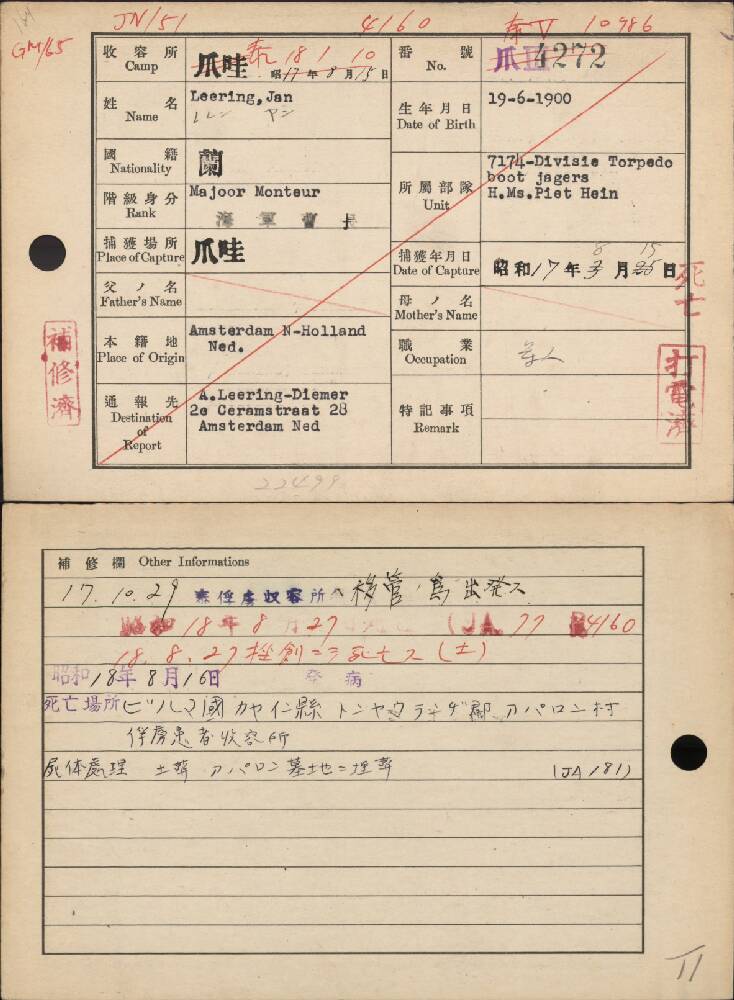 JN/51
4160
泰V 10986
GM/65
收容所 Camp 爪哇 泰 18 1 10
昭17年8月15日
番號 No. 爪III 4272
姓名 Name Leering, Jan
レレン ヤン
生年月日 Date of Birth 19-6-1900
國籍 Nationality 蘭
階級身分 Rank Majoor Monteur
海軍曹長
所屬部隊 Unit 7174-Divisie Torpedo
boot jagers
H.Ms.Piet Hein
捕獲場所 Place of Capture 爪哇
捕獲年月日 Date of Capture 昭和17年3月25日
8 15
父ノ名 Father's Name
母ノ名 Mother's Name
本籍地 Place of Origin Amsterdam N-Holland
Ned.
職業 Occupation 軍人
通報先 Destination of Report A.Leering-Diemer
2e Ceramstraat 28
Amsterdam Ned
特記事項 Remark
補修濟
死亡
打電濟
22499
補修欄 Other Informations
17.10.29 泰俘虜収容所ヘ移管ノ為出発ス
昭和18年8月27 (JA 77 4160
18.8.27 挫創ニヨリ死亡ス(土)
昭和18年8月16日 発病
死亡場所 ビルマ國カヤイン縣 郡アパロン村
俘虜患者收容所
屍体處理 土葬 アパロン墓地ニ埋葬 (JA181)